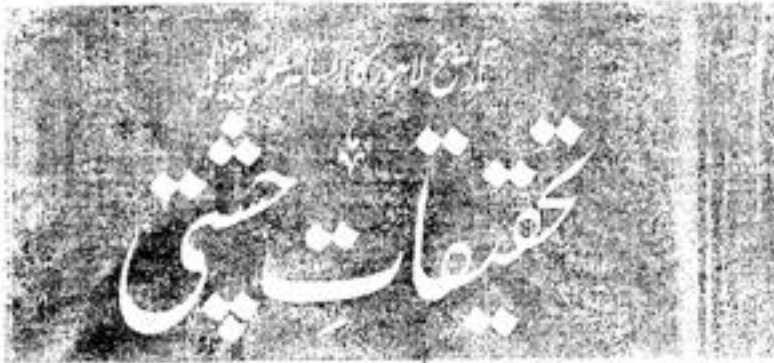 تاریخ لاہور کا انسائیکلوپیڈیا
تحقیقاتِ چشتی